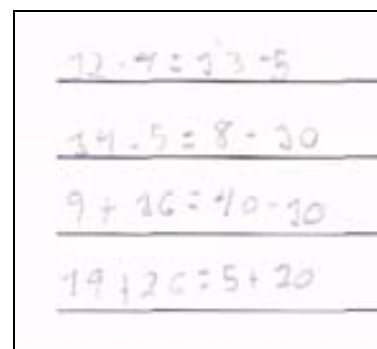 12 . 4 = 13 - 5
14 . 5 = 8 - 10
9 + 16 = 40 - 10
19 + 26 = 5 + 20